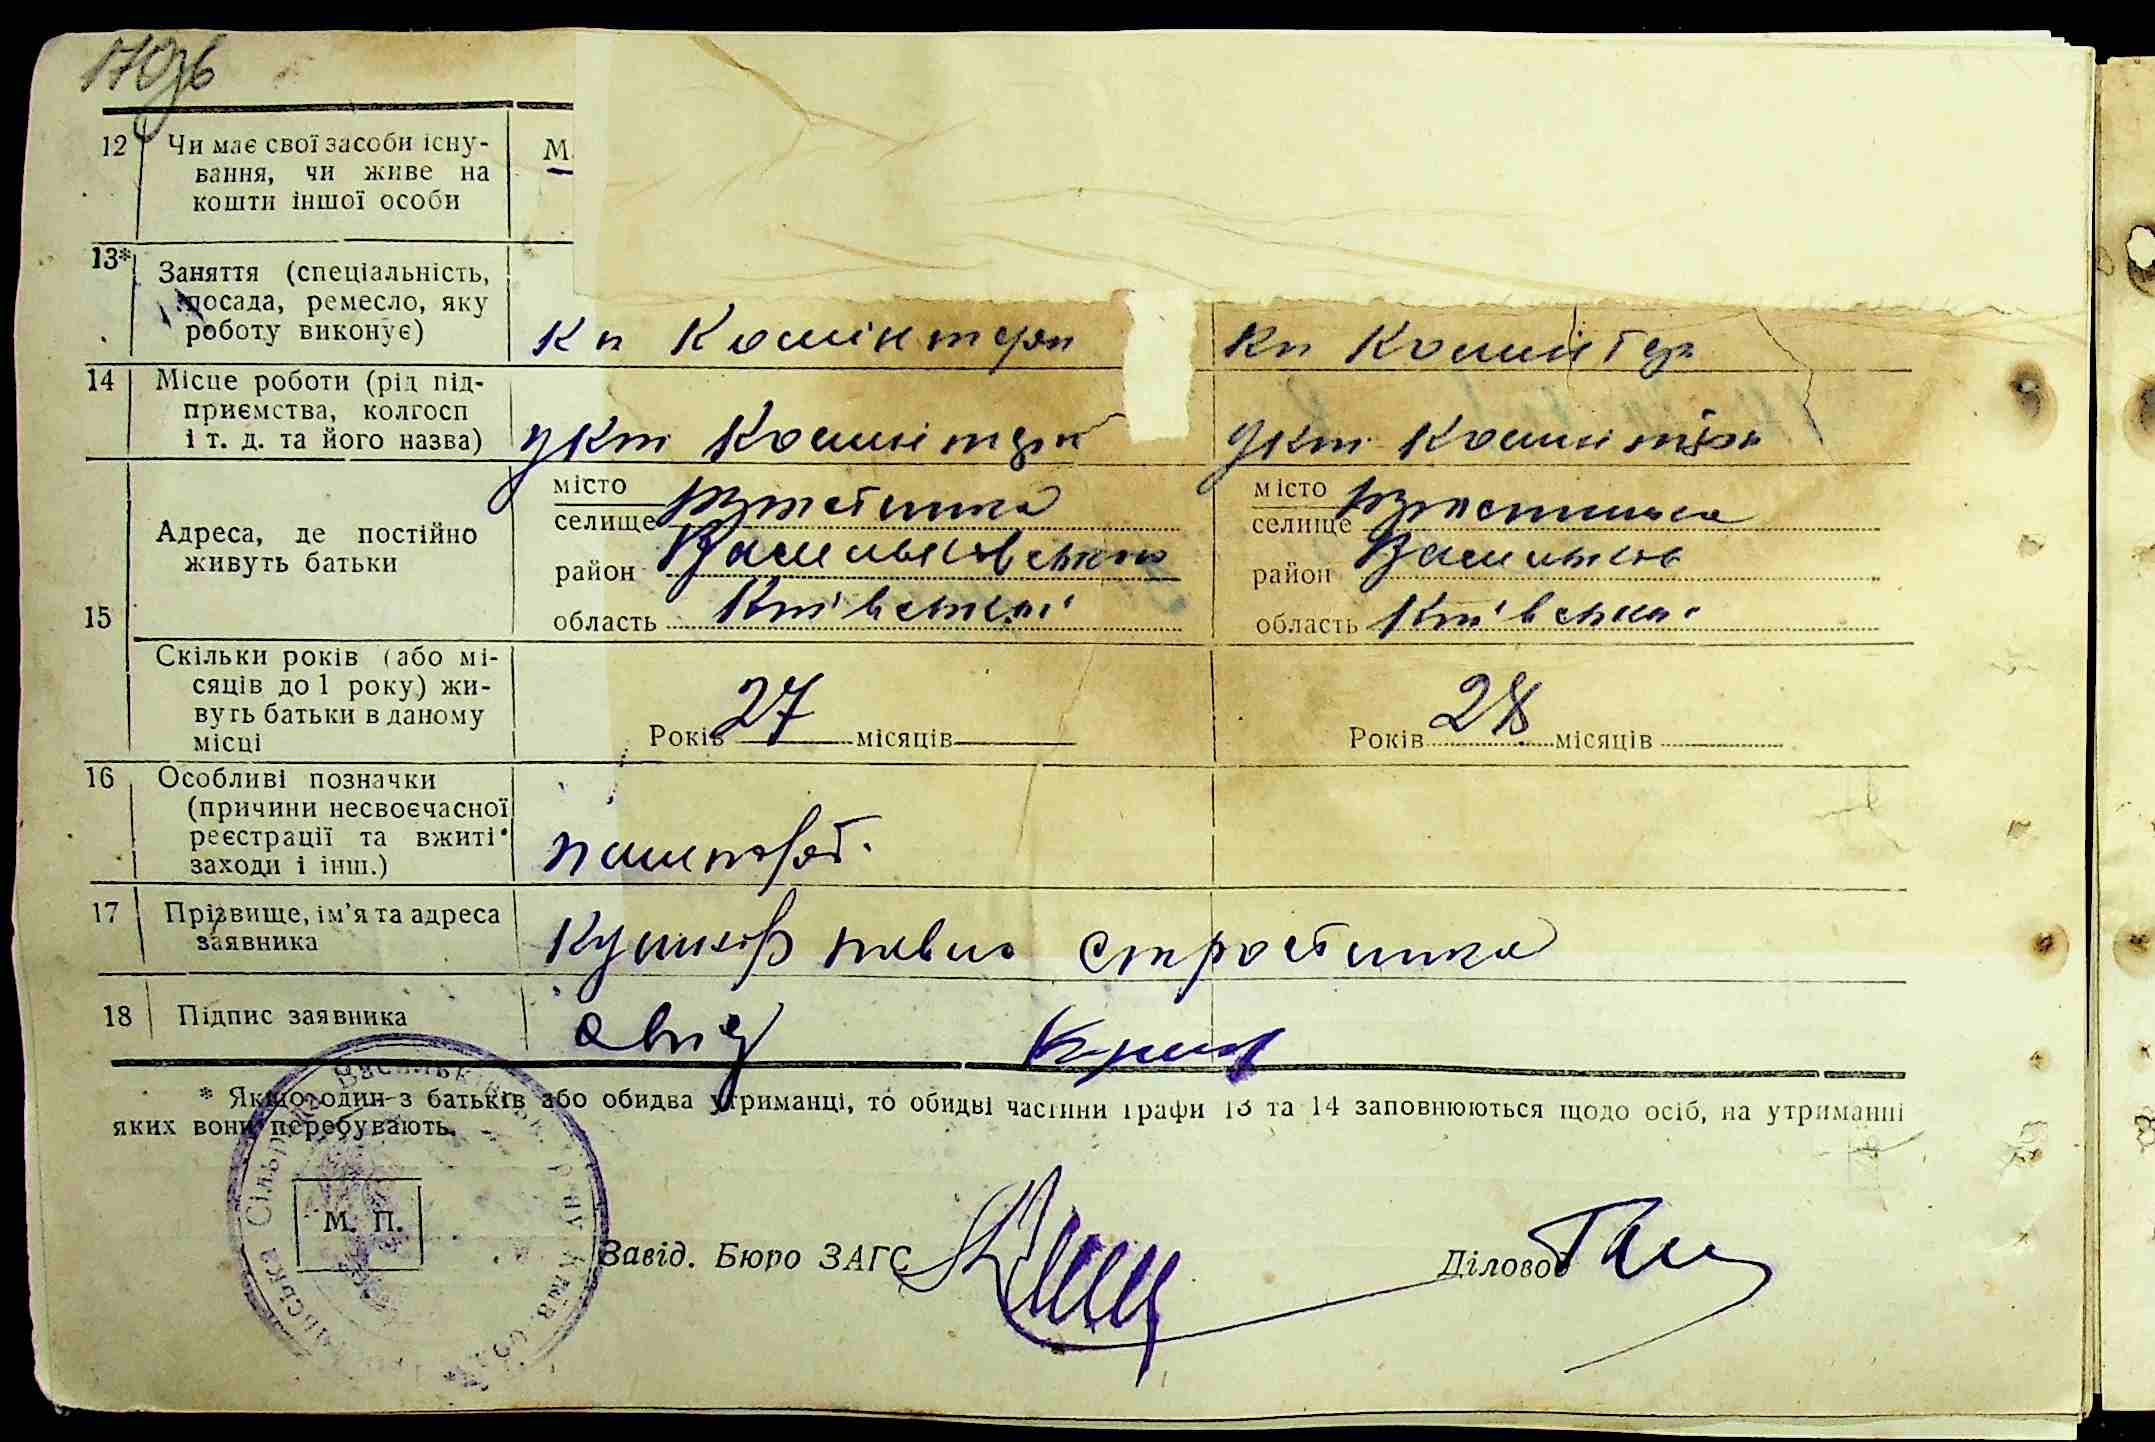 12 Чи має свої засоби існу-
вання, чи живе на
кошти іншої особи
М
13* Заняття (спеціальність,
посада, ремесло, яку
роботу виконує)
Кп Комінтерн Кп Комінтер
14 Місце роботи (рід під-
приємства, колгосп
і т. д. та його назва)
Комінтерн Комінтерн
15 Адреса, де постійно
живуть батьки
місто місто
селище селище
район Васильковськ район Васильков
область Київської область Київської
Скільки років (або мі-
сяців до 1 року) жи-
вуть батьки в даному
місці
Років 27 місяців Років 28 місяців
16 Особливі позначки
(причини несвоєчасної
реєстрації та вжиті
заходи і інш.)
пашпорт.
17 Прізвище, ім'я та адреса
заявника
Кушнір Павло
18 Підпис заявника
* Якщо один з батьків або обидва утриманці, то обидві частини графи 13 та 14 заповнюються щодо осіб, на утриманні
яких вони перебувають.
М. П.
Завід. Бюро ЗАГС Діловод